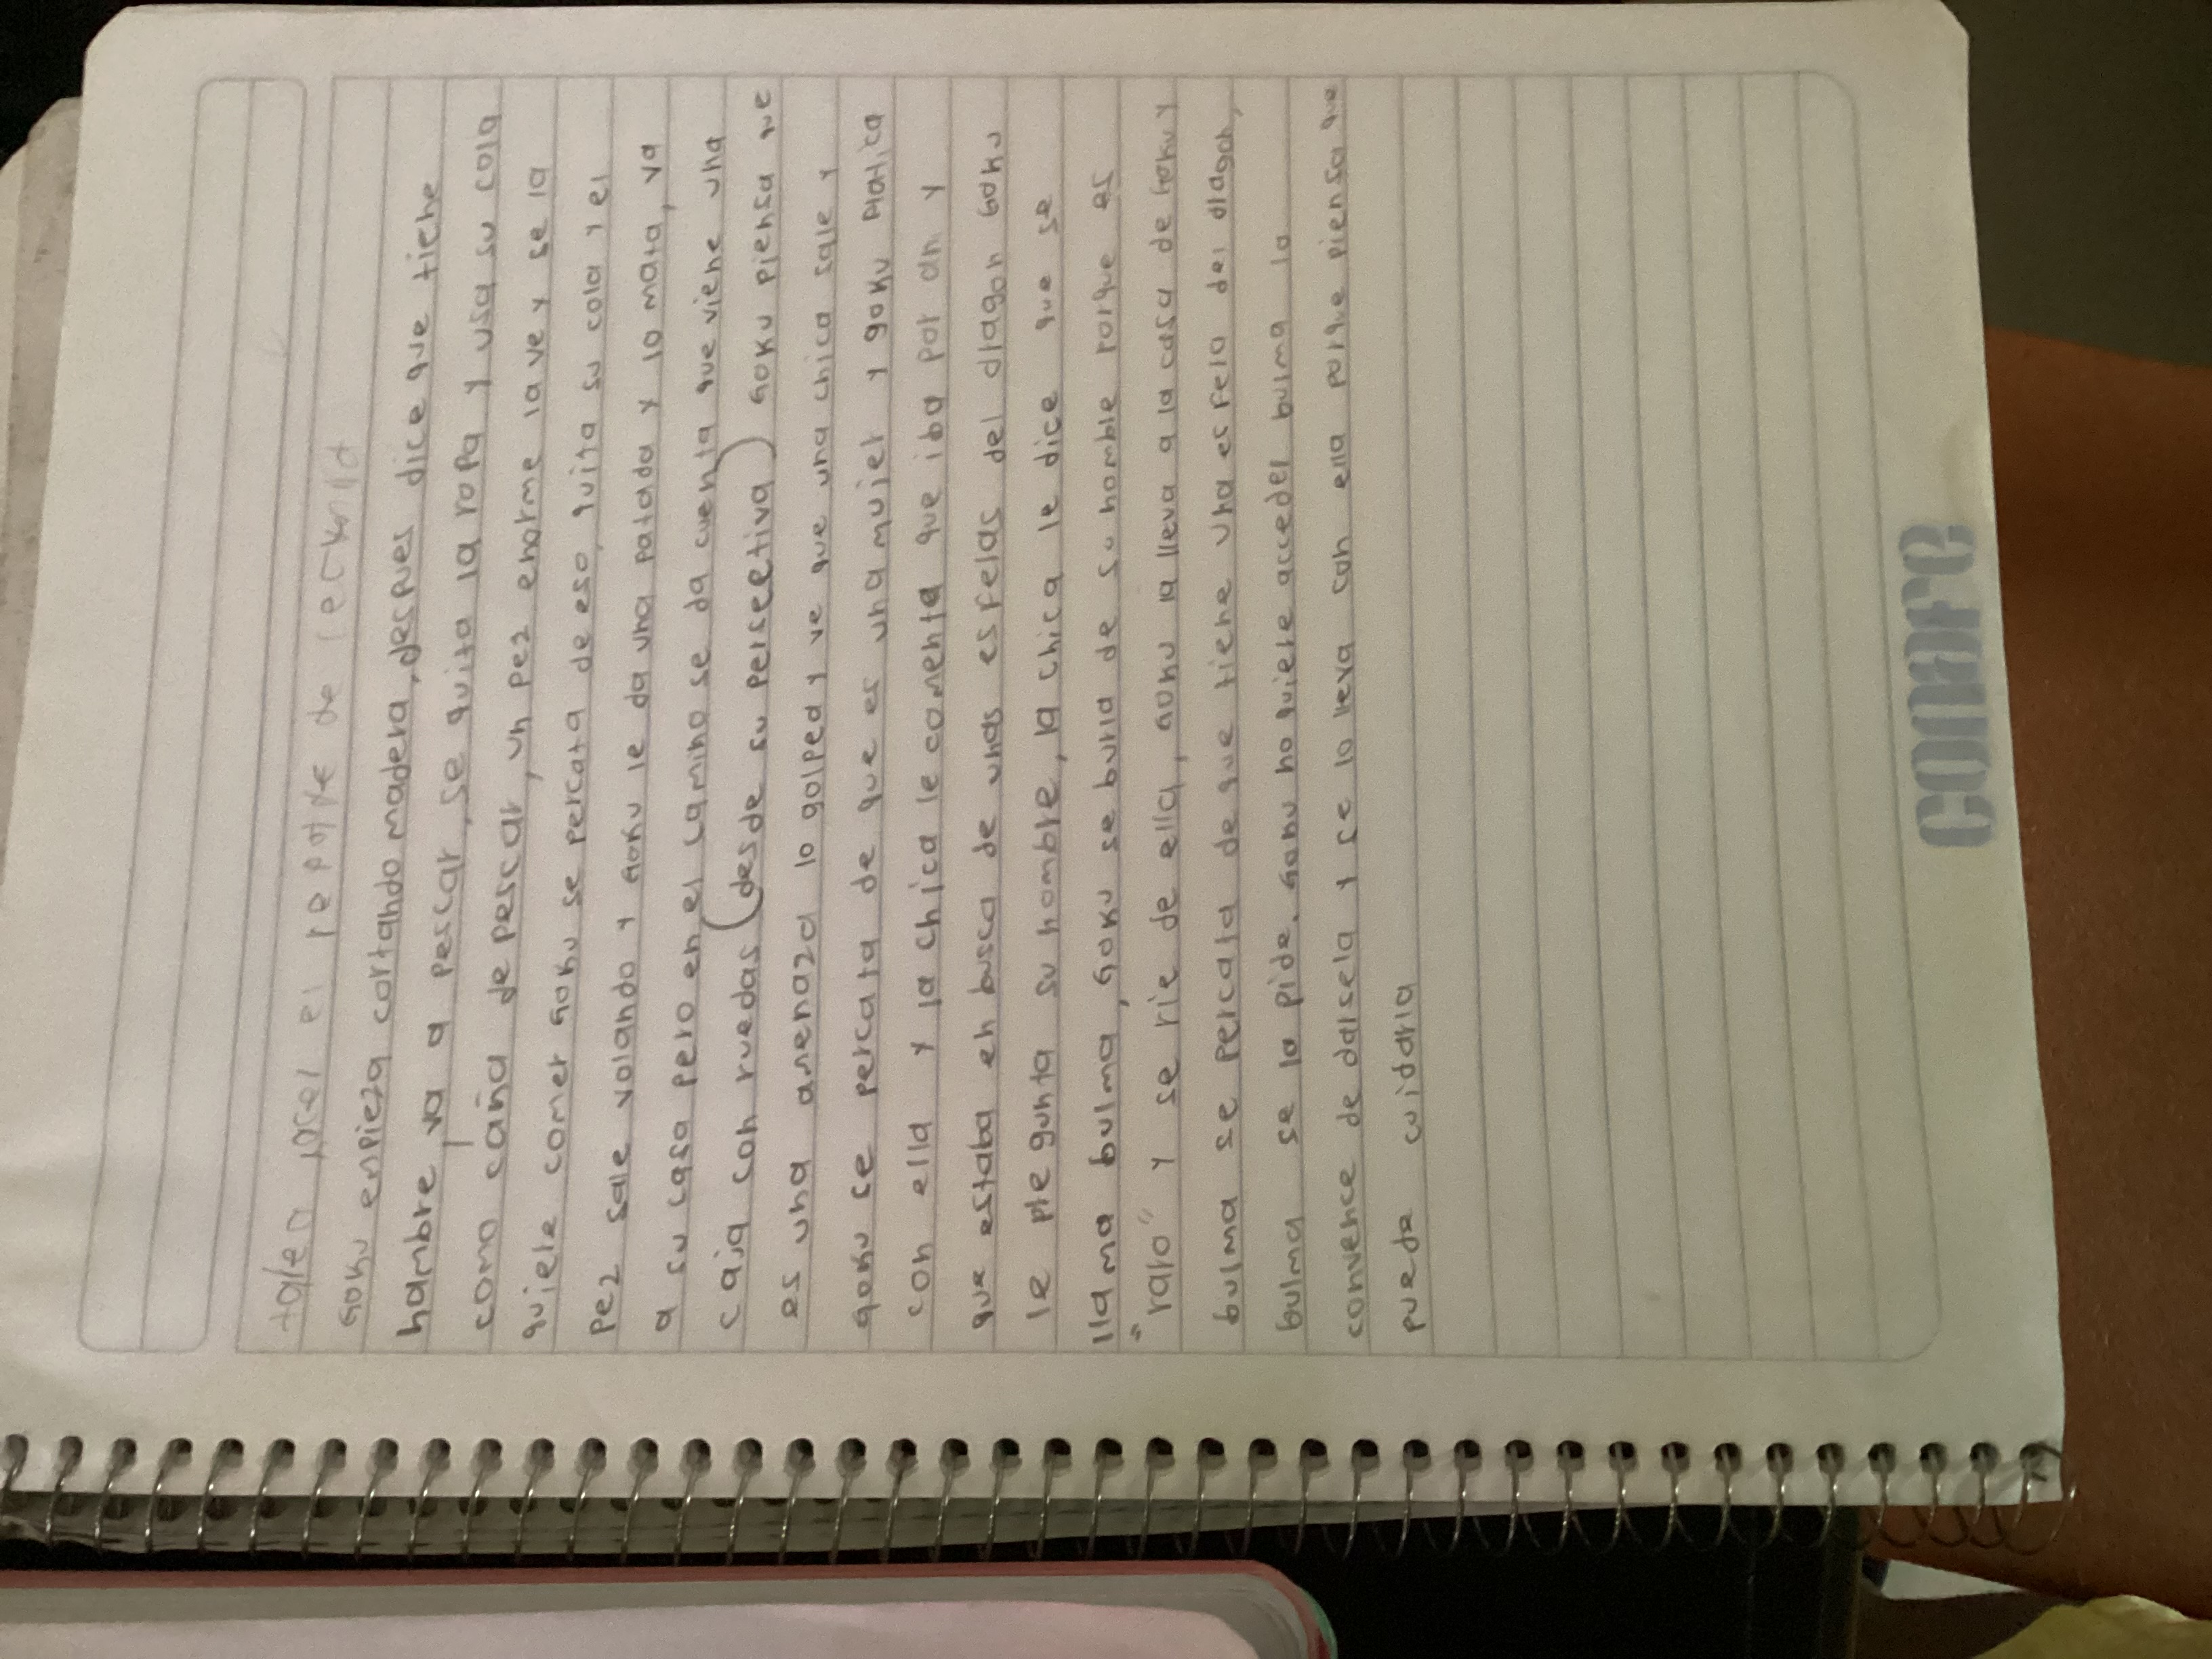 tarea, hacer el reporte de lectura
Goku enpieza cortando madera, despues dice que tiene
hambre va a pescar, se quita la ropa y usa su cola
como caña de pescar, un pez enorme la ve y se la
quiere comer Goku se percata de eso, quita su cola y el
pez sale volando y Goku le da una patada y lo mata, va
a su casa pero en el camino se da cuenta que viene una
caja con ruedas (desde su persectiva) Goku piensa que
es una amenaza lo golpea y ve que una chica sale y
goku se percata de que es una mujer y goku platica
con ella y la chica le comenta que iba por ahi y
que estaba en busca de unas esferas del dragon Goku
le pregunta su nombre, la chica le dice que se
llama bulma, Goku se burla de su nombre porque es
"raro" y se rie de ella, Goku la lleva a la casa de Goku y
bulma se percata de que tiene una esfera del dragon,
bulma se la pide. Goku no quiere acceder bulma lo
convence de darsela y se lo lleva con ella porque piensa que
puede cuidarla
comare